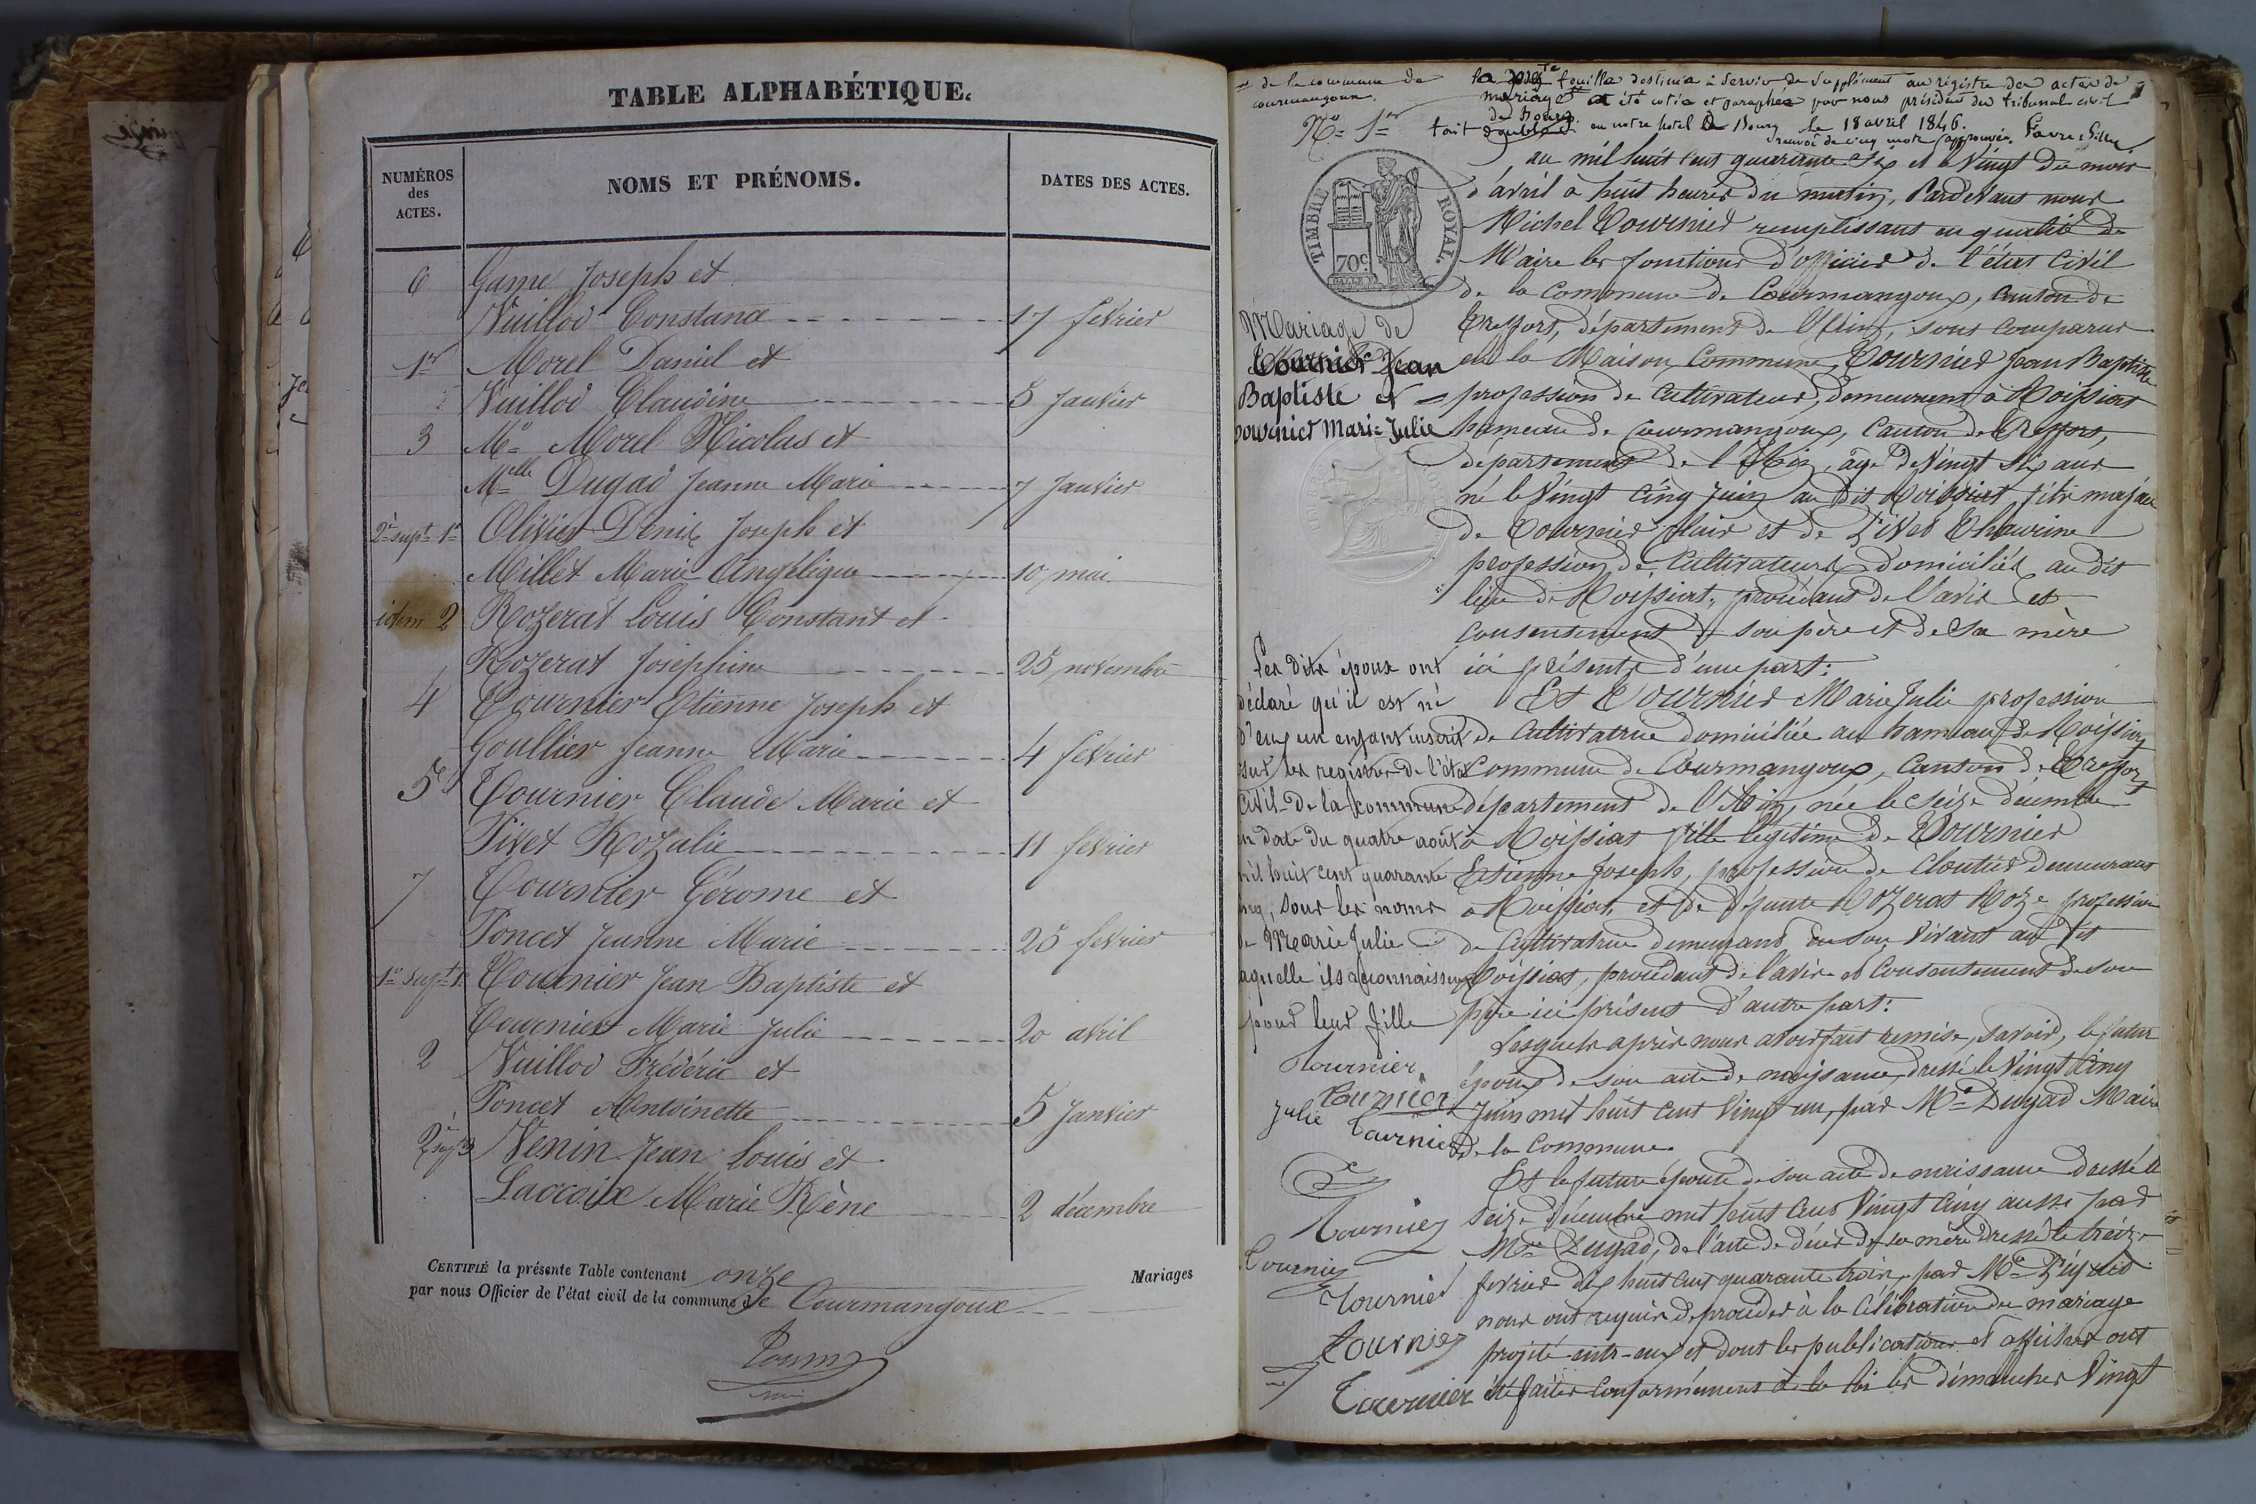 TABLE ALPHABÉTIQUE.
NUMÉROS des ACTES.
NOMS ET PRÉNOMS.
DATES DES ACTES.
6 Game Joseph et
Vuillod Constance 17 février
1er Morel Daniel et
Vuillod Claudine 5 Janvier
3 Mr Morel Nicolas et
Melle Dugad Jeanne Marie 7 Janvier
2e supt 1er Olivier Denix Joseph et
Millet Marie Angélique 10 mai
idem 2 Rozerat Louis Constant et
Rozerat Joséphine 25 novembre
4 Tournier Etienne Joseph et
Goullier Jeanne Marie 4 février
5 Tournier Claude Marie et
Pivet Rozalie 11 février
7 Tournier Gérome et
Poncet Jeanne Marie 25 février
1er supt 1er Tournier Jean Baptiste et
Tournier Marie Julie 20 avril
2 Vuillod Frédéric et
Poncet Antoinette 5 Janvier
3 Venin Jean Louis et
Lacroix Marie Rène 2 décembre
CERTIFIÉ la présente Table contenant onze Mariages
par nous Officier de l'état civil de la commune de Courmangoux
de la commune de
courmangoux.
feuille destinée à servir de supplément au régistre des actes de
mariage a été cotée et paraphée par nous président du tribunal civil
de Bourg.
fait en notre hotel à Bourg le 18 avril 1846.
renvoi de cinq mots approuvé.
No 1er
TIMBRE ROYAL.
70c
au mil huit cent quarante six et le vingt du mois
d'avril à huit heures du matin, Pardevant nous
Michel Tournier remplissant en qualité de
Maire les fonctions d'officier de l'état Civil
de la Commune de Courmangoux, Canton de
Treffort, département de l'Ain, sont comparus
en la Maison Commune, Tournier Jean Baptiste
profession de Cultivateur, demeurant à Roissiat
hameau de Courmangoux, Canton de Treffort,
département de l'Ain, agé de Vingt six ans
né le Vingt Cinq Juin au dit Roissiat, fils majeur
de Tournier Clair et de Pivet
profession de Cultivateurs domiciliés au dit
lieu de Roissiat, procédant de l'avis et
Consentement de son père et de sa mère
ici présents d'une part:
Mariage de
Tournier Jean
Baptiste et
Tournier Marie Julie
Et Tournier Marie Julie profession
de Cultivatrice domiciliée au hameau de Roissiat
Commune de Courmangoux, Canton de Treffort
département de l'Ain, née le seize décembre
à Roissiat fille légitime de Tournier
Etienne Joseph, profession de Cloutier demeurant
à Roissiat, et de défunte Rozerat Roze profession
de Cultivatrice demeurant en son vivant au dit
Roissiat, procédant de l'avis et Consentement de son
père ici présent d'autre part:
Les dits époux ont
déclaré qu'il est né
d'eux un enfant inscrit
sur les registres de l'état
civil de la commune
en date du quatre août
mil huit cent quarante
cinq, sous les noms
de Marie Julie
laquelle ils reconnaissent
pour leur fille
Tournier
Tournier
Julie Tournier
Tournier
Tournier
Tournier
Tournier
Tournier
Lesquels après nous avoir fait remise, savoir, le futur
époux de son acte de naissance, dressé le Vingt Cinq
Juin mil huit cent Vingt un, par Mr Dugad Maire
de la Commune
Et la future épouse de son acte de naissance dressé le
seize décembre mil huit cent Vingt Cinq aussi par
Mr Dugad, de l'acte de décès de sa mère dressé le treize
février dix huit cent quarante trois, par Mr
nous ont requis de procéder à la Célébration du mariage
projeté entr-eux et dont les publications et affiches ont
été faites Conformément à la loi les dimanches Vingt